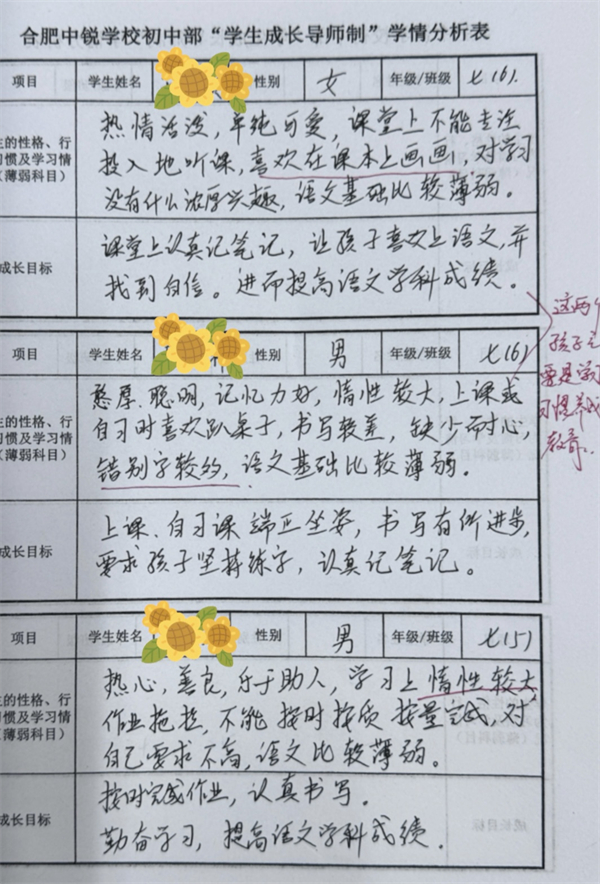 合肥中锐学校初中部“学生成长导师制”学情分析表
项目 学生姓名 性别 女 年级/班级 七(6).
生的性格、行
习惯及学习情
（薄弱科目）
热情活泼，单纯可爱，课堂上不能专注
投入地听课，喜欢在课本上画画，对学习
没有什么浓厚兴趣，语文基础比较薄弱。
成长目标
课堂上认真记笔记，让孩子喜欢上语文，并
找到自信。进而提高语文学科成绩。
这两个
孩子主
要是学
习惯养成
教育。
项目 学生姓名 性别 男 年级/班级 七(6)
生的性格、行
习惯及学习情
（薄弱科目）
憨厚、聪明，记忆力好，惰性较大，上课或
自习时喜欢趴桌子，书写较差，缺少耐心，
错别字较多，语文基础比较薄弱。
成长目标
上课、自习课端正坐姿，书写有所进步，
要求孩子坚持练字，认真记笔记。
项目 学生姓名 性别 男 年级/班级 七(5)
生的性格、行
习惯及学习情
（薄弱科目）
热心，善良，乐于助人，学习上惰性较大
作业拖拉，不能按时按质按量完成，对
自己要求不高，语文比较薄弱。
成长目标
按时完成作业，认真书写。
勤奋学习，提高语文学科成绩。